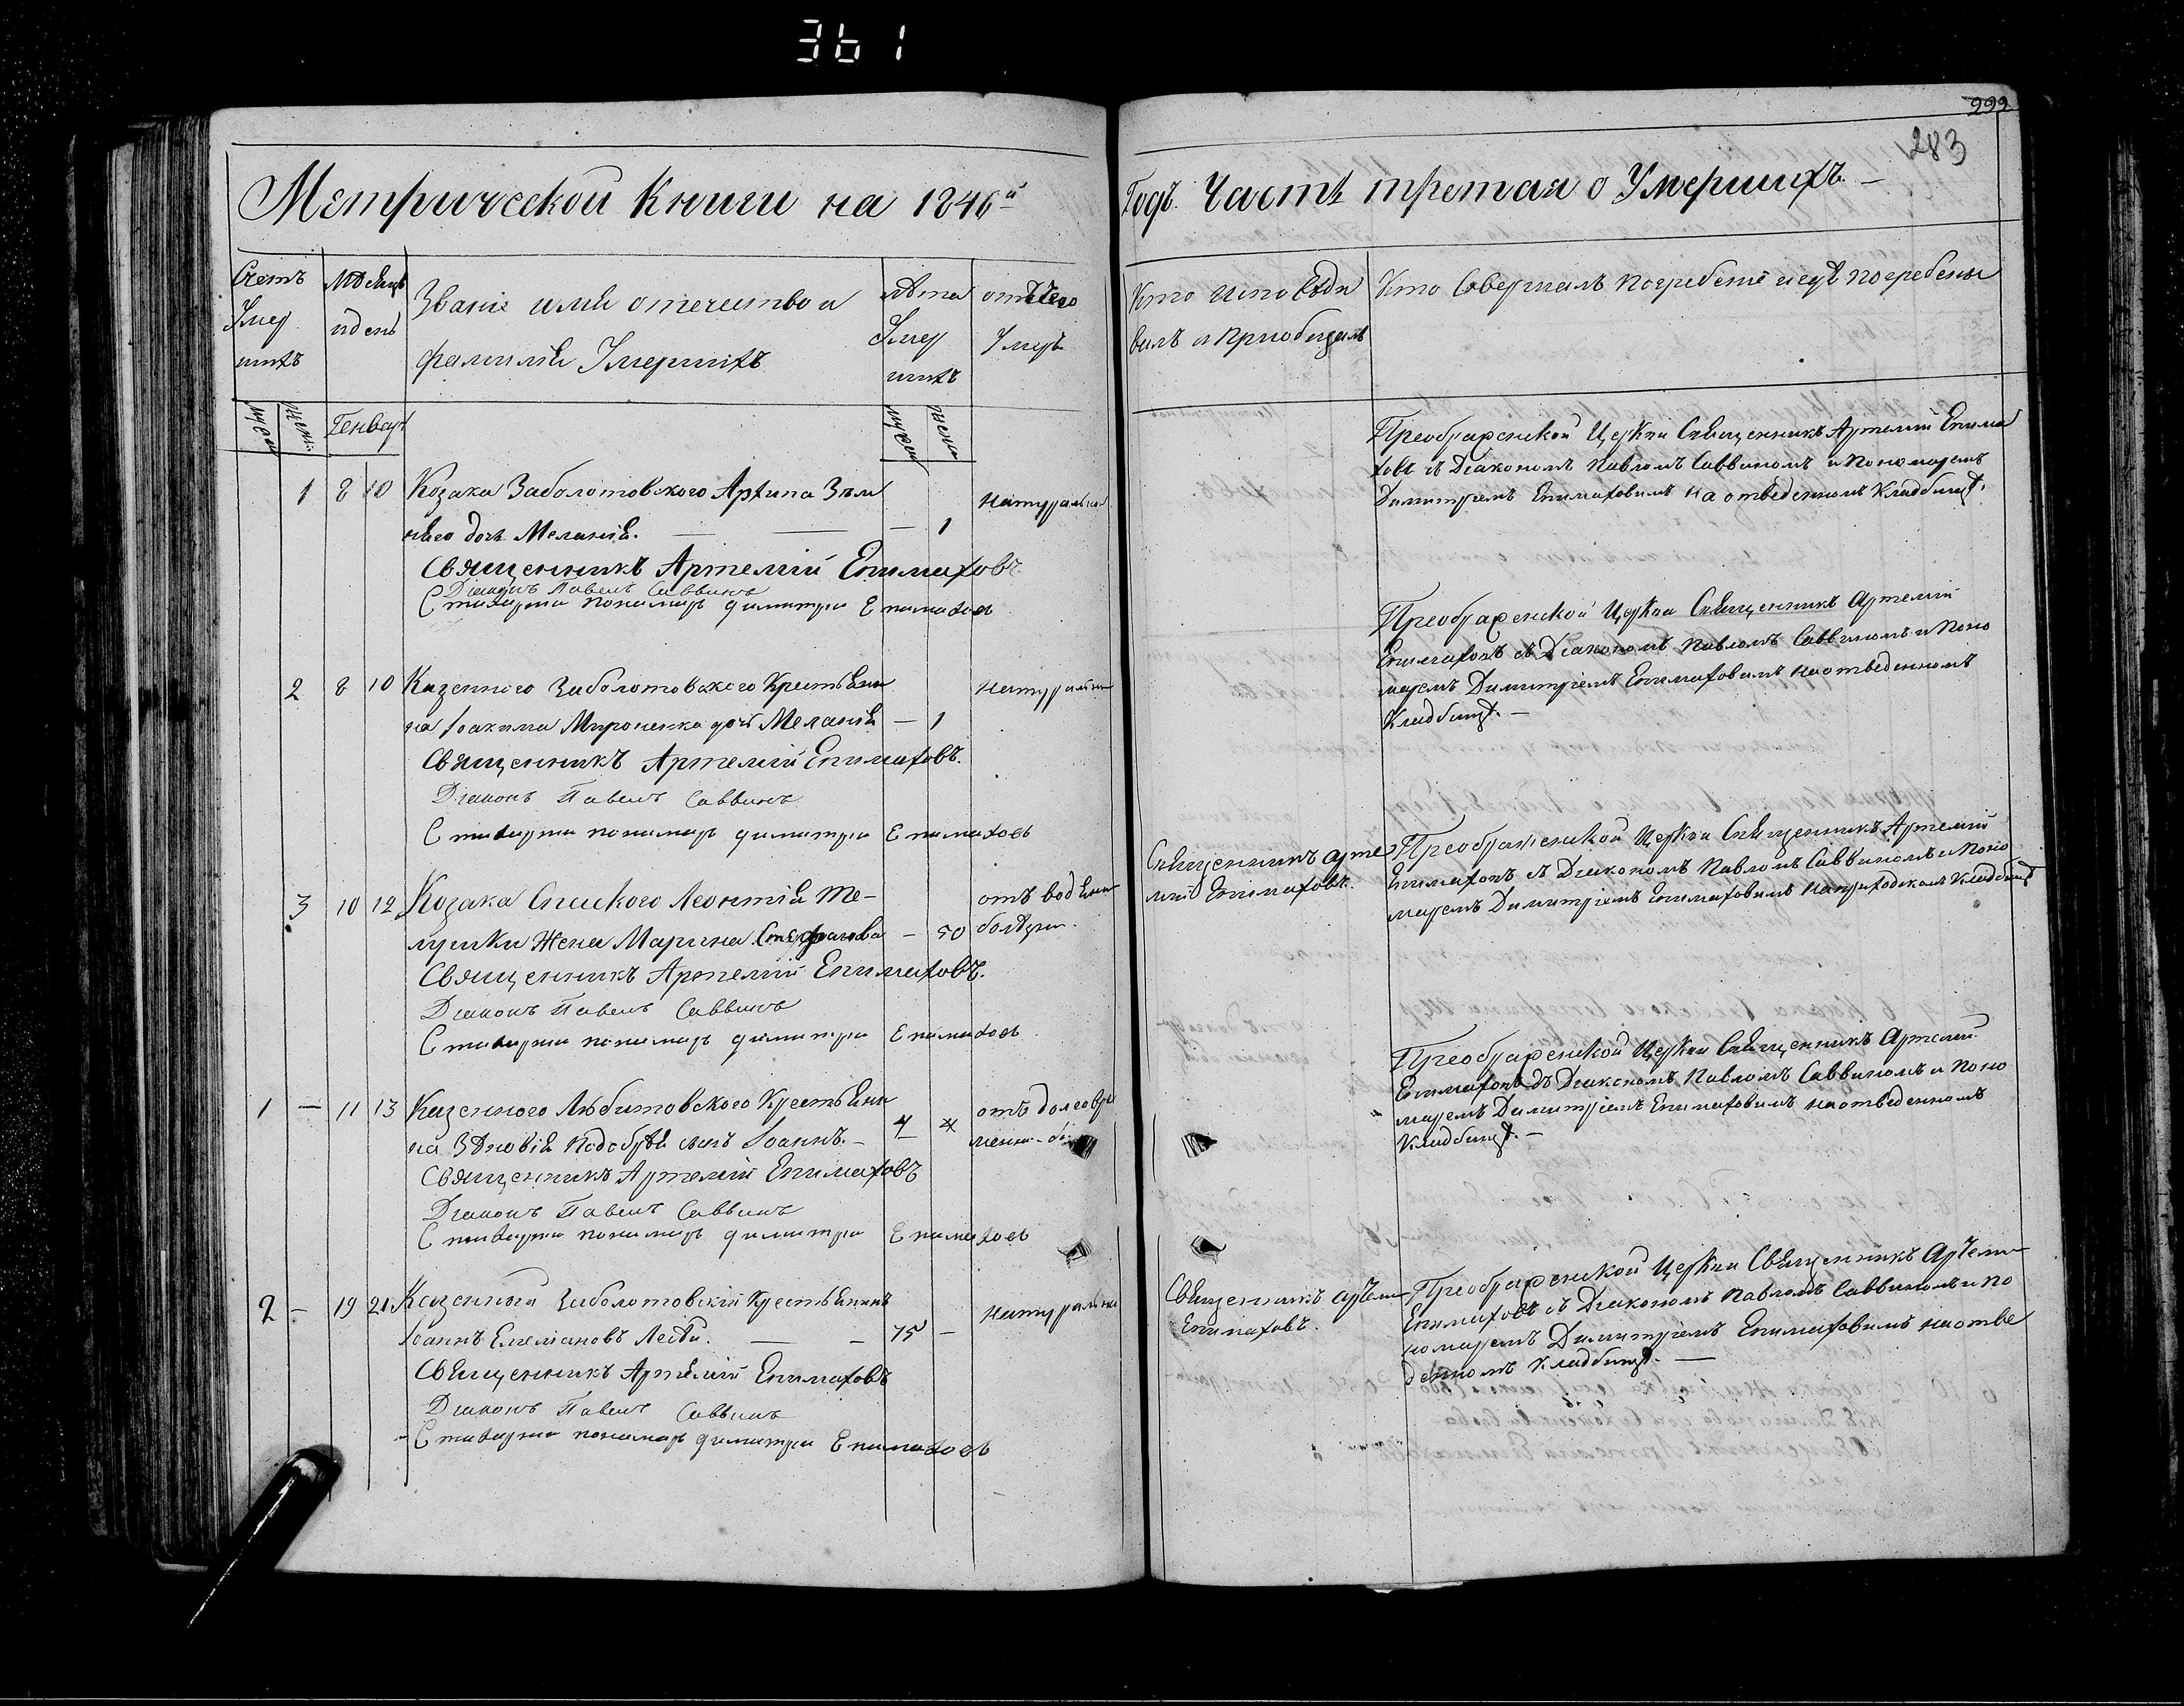 361
222
283
Метрической Книги на 1846й
Годъ. Часть третая о Умершихъ. —
Счетъ Умер шихъ
Мѣсяцъ и день
Званіе имя отечество и фамилія Умершихъ
Лѣта Умер шихъ
отъ чего Умеръ
Кто исповѣды валъ и приобщалъ
Кто Совершалъ погребеніе и гдѣ погребены
муж жен
Генвар
муж жен
1 8 10 Козака Заболотовского Архипа
дочь Меланія. — — 1
натуральной
Священникъ Артемій Епимаховъ
Діаконъ Павелъ Саввинъ
Стихарни понамарь димитри Епимахов
Преображенской Церкви Священникъ Артемій Епима
ховъ съ Діакономъ Павломъ Саввиномъ и Пономаремъ
Димитріемъ Епимаховымъ на отведенномъ Кладбищѣ.
2 8 10 Казенного Заболотовского Крестьяни
на Іоакима Мироненка дочь Меланія — 1
натуральн
Священникъ Артемій Епимаховъ.
Діаконъ Павелъ Саввинъ
Стихарни понамарь димитри Епимахов
Преображенской Церкви Священникъ Артемій
Епимаховъ съ Діакономъ Павломъ Саввиномъ и Поно
маремъ Димитріемъ Епимаховымъ на отведенномъ
Кладбищѣ. —
3 10 12 Козака Леонтія Те-
лушки Жена Марина Стефанова — 50
отъ водяни
болѣзни
Священникъ Артемій Епимаховъ.
Діаконъ Павелъ Саввинъ
Стихарни понамарь димитри Епимахов
Священникъ Арте
мій Епимаховъ.
Преображенской Церкви Священникъ Артемій
Епимаховъ съ Діакономъ Павломъ Саввиномъ и Поно
маремъ Димитріемъ Епимаховымъ на приходскомъ Кладбищѣ
1 — 11 13 Казенного Любитовского Крестьяни
на Зѣновія сынъ Іоаннъ. — 4
отъ долговре
менн.
Священникъ Артемій Епимаховъ
Діаконъ Павелъ Саввинъ
Стихарни понамарь димитри Епимахов
Преображенской Церкви Священникъ Артемій
Епимаховъ съ Діакономъ Павломъ Саввиномъ и Поно
маремъ Димитріемъ Епимаховымъ на отведенномъ
Кладбищѣ. —
2 — 19 21 Казенный Заболотовскій Крестьянинъ
Іоаннъ Емеліановъ — — 75 —
натуральни
Священникъ Артемій Епимаховъ
Діаконъ Павелъ Саввинъ
Стихарни понамарь димитри Епимахов
Священникъ Артеми
Епимаховъ.
Преображенской Церкви Священникъ Артеми
Епимаховъ съ Діакономъ Павломъ Саввиномъ и По
номаремъ Димитріемъ Епимаховымъ на отве
денномъ Кладбищѣ. —